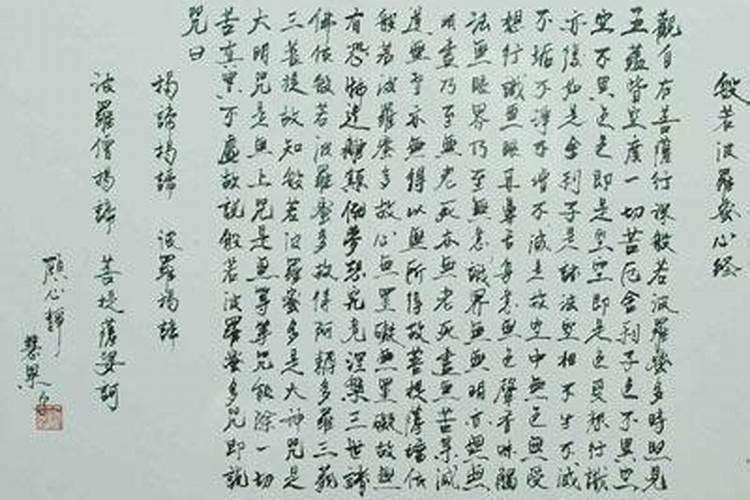 般若波羅蜜心經
觀自在菩薩行深般若波羅蜜多時照見
五蘊皆空度一切苦厄舍利子色不異空
空不異色色即是空空即是色受想行識
亦復如是舍利子是諸法空相不生不滅
不垢不淨不增不減是故空中無色無受
想行識無眼耳鼻舌身意無色聲香味觸
法無眼界乃至無意識界無無明亦無無
明盡乃至無老死亦無老死盡無苦集滅
道無智亦無得以無所得故菩提薩埵依
般若波羅蜜多故心無罣礙無罣礙故無
有恐怖遠離顛倒夢想究竟涅槃三世諸
佛依般若波羅蜜多故得阿耨多羅三藐
三菩提故知般若波羅蜜多是大神咒是
大明咒是無上咒是無等等咒能除一切
苦真實不虛故說般若波羅蜜多咒即說
咒曰
揭諦揭諦 波羅揭諦
波羅僧揭諦 菩提薩婆訶
顧心